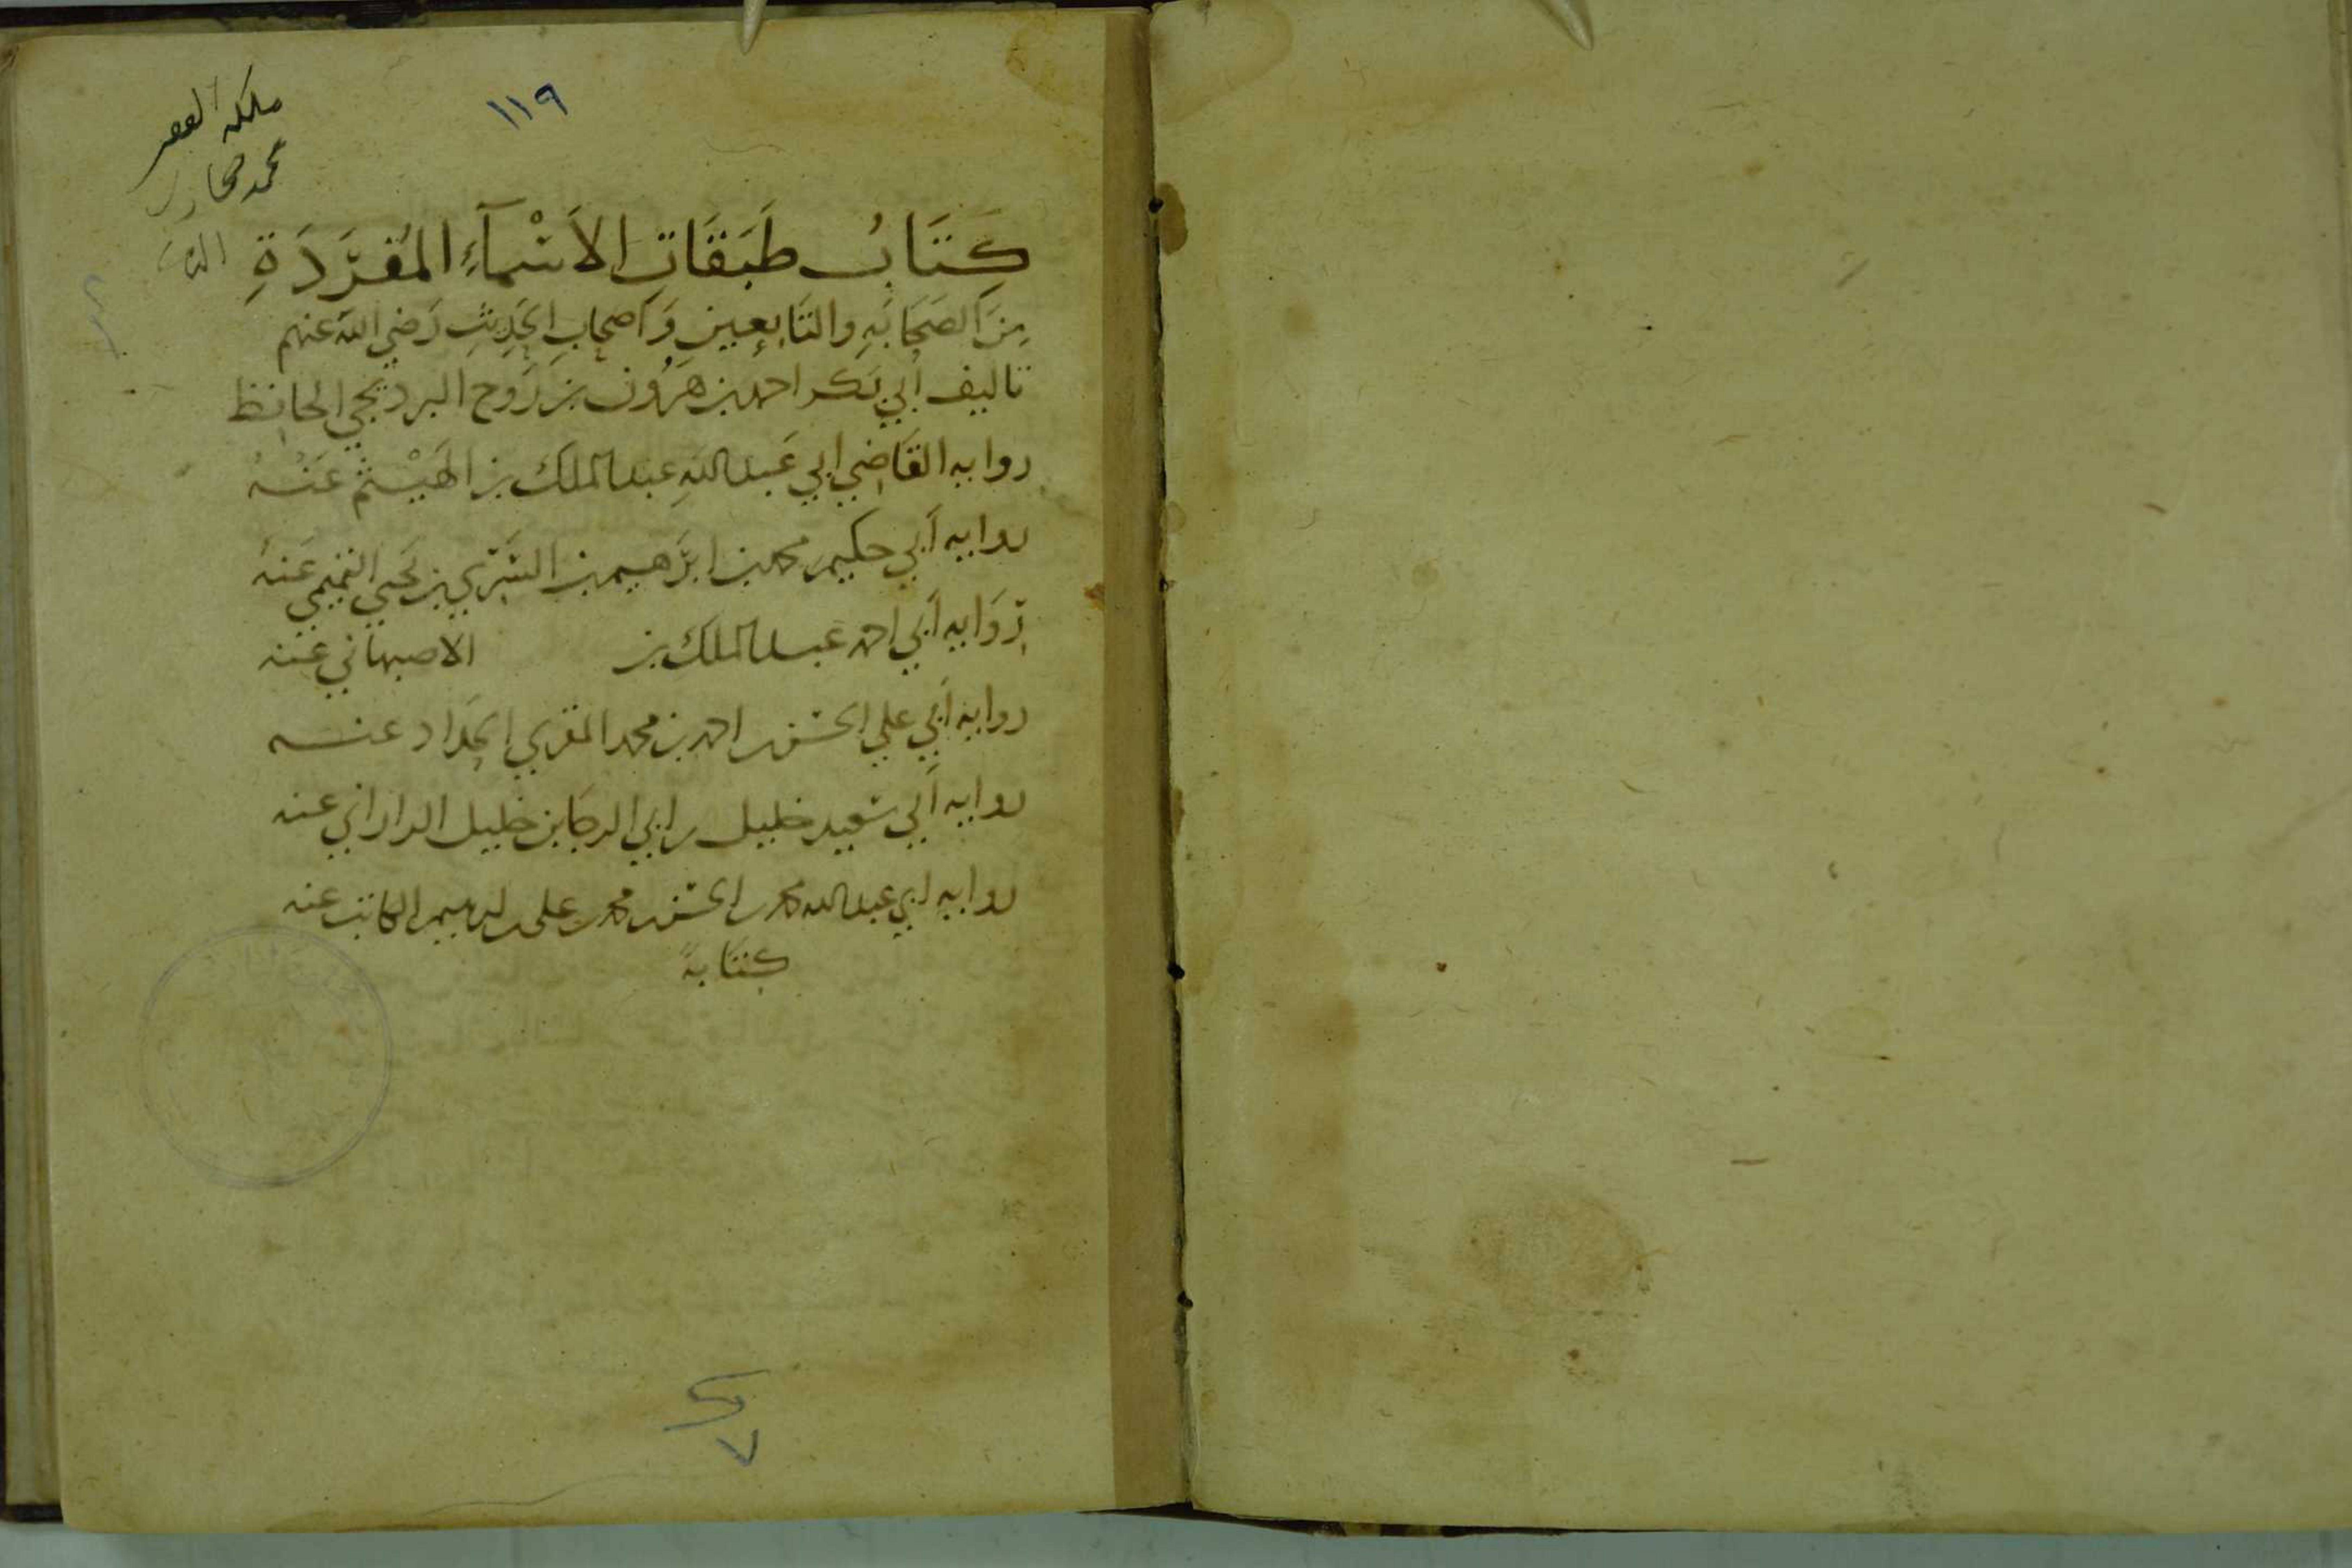 ١١٩
ملكه الفقير
محمد
كِتَابُ طَبَقَاتِ الأَسْمَآءِ المُفرَّدَةِ
مِنَ الصَحَابَةِ والتَابِعِين وَأصحابِ الحَدِيثِ رَضي الله عنهم
تاليف أبي بَكر احمد بن هَرُون بن رَوح البرديجي الحافِظ
روايه القَاضِي ابي عَبد اللهِ عبد الملك بن الهَيْثم عَنْهُ
روايه أبي حكيم محمد بن ابرَاهيم بن السَّرِي بن يحيى التميمي عَنهُ
رِوَايه أبي احمد عبد الملك بن الاصبهاني عنه
روايه أبي علي الحسن بن احمد بن محمد المقري الحَداد عنه
روايه أبي سَعيد خليل بن ابي الرجَا بن خليل الراراني عنه
روايه ابي عبد الله محمد بن الحسن بن محمد بن علي بن ابرهيم الكاتب عنه
كِتَابةً
٧